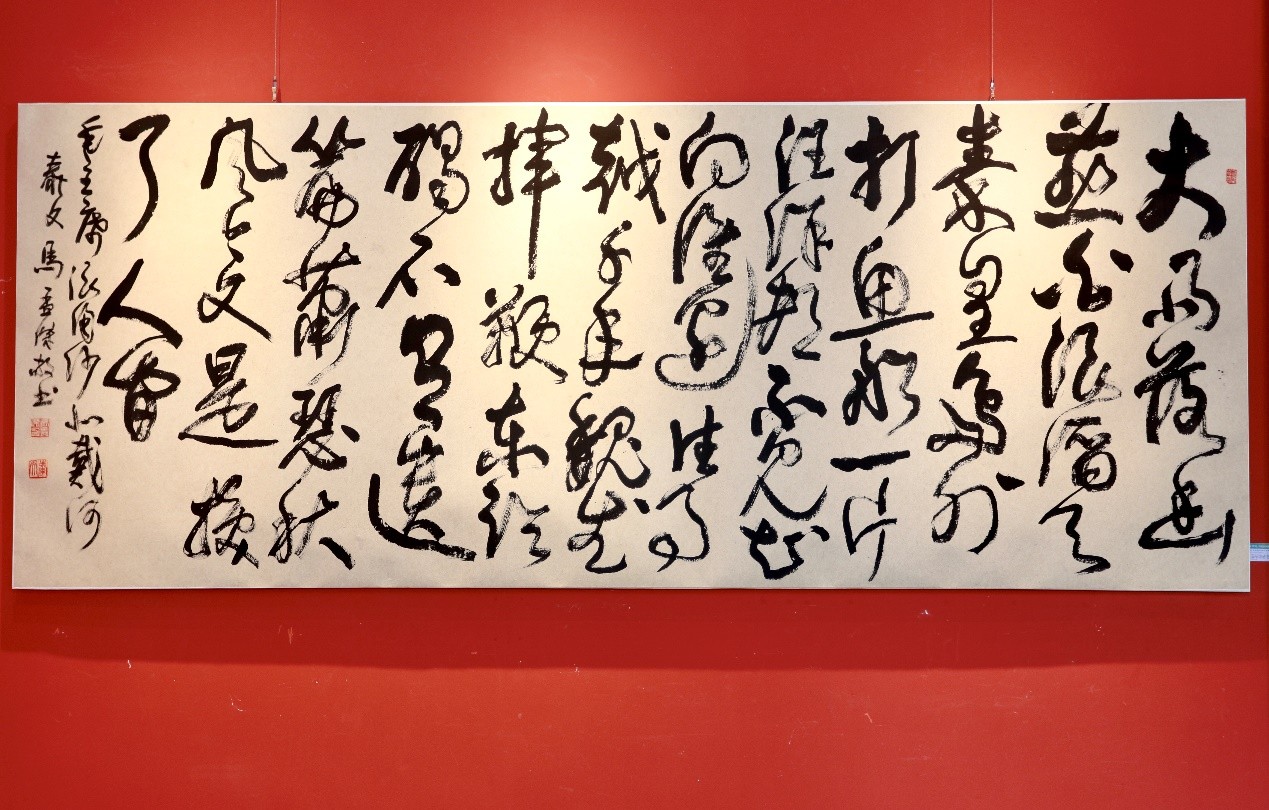 大雨落幽
燕白浪滔天
秦皇岛外
打鱼船一片
汪洋都不见知
向谁边往事
越千年魏武
挥鞭东临
碣石有遗
篇萧瑟秋
风今又是换
了人间
毛主席浪淘沙北戴河
馬敬书